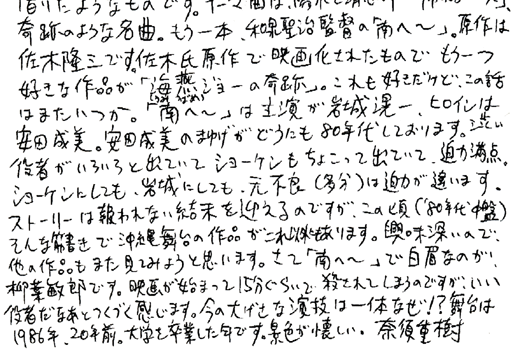 奇跡のような名曲。もう一本、和泉聖治監督の「南へ〜」。原作は
佐木隆三です。佐木氏原作で映画化されたもので もう一つ
好きな作品が「海燕ジョーの奇跡」。これも好きだけど、この話
はまたいつか。「南へ〜」は主演が岩城滉一 ヒロインは
安田成美。安田成美のまゆげがどうにも80年代しております。渋い
役者がいろいろと出ていて ショーケンもちょこって出ていて 迫力満点。
ショーケンにしても、岩城にしても、元不良(多分)は迫力が違います。
ストーリーは報われない結末を迎えるのですが、この頃('80年代中盤)
そんな筋書きで沖縄舞台の作品がこれ以外もあります。興味深いので、
他の作品もまた見てみようと思います。さて「南へ〜」で白眉なのが、
柳葉敏郎です。映画が始まって15分ぐらいで 殺されてしまうのですが、いい
役者だなあとつくづく感じます。今の大げさな演技は一体なぜ!?舞台は
1986年、20年前。大学を卒業した年です。景色が懐しい。 奈須重樹